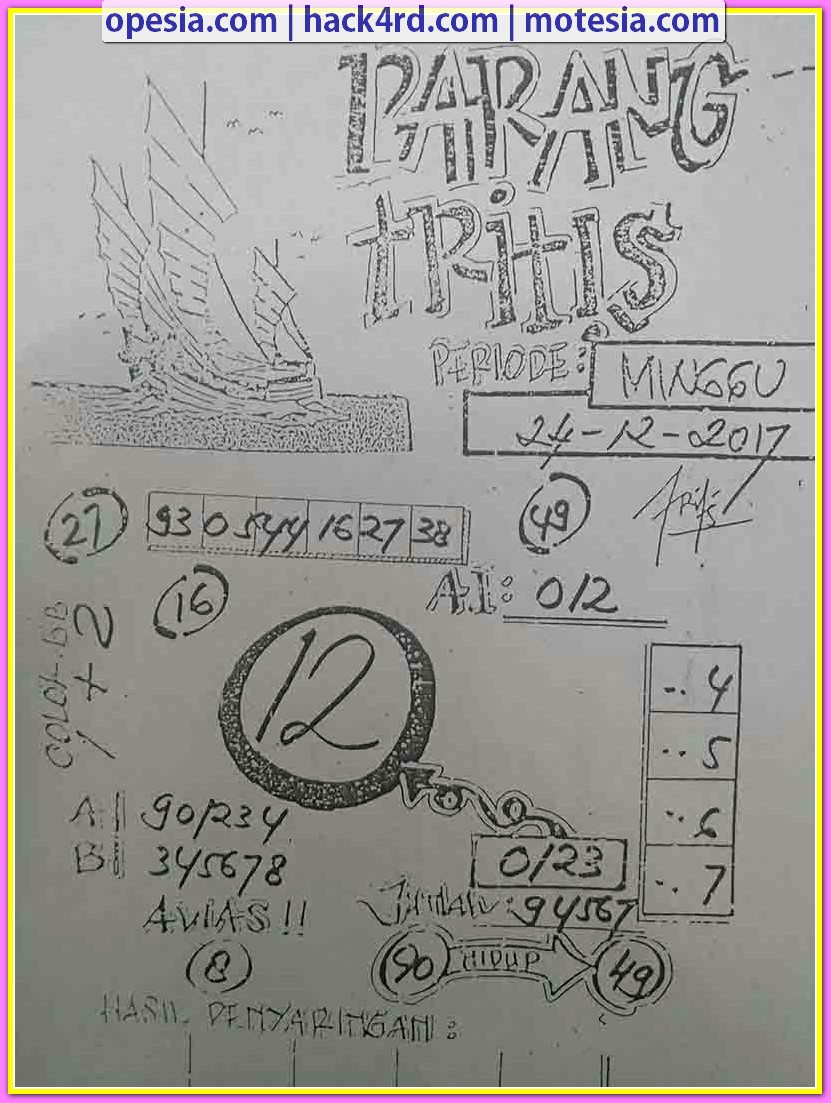 opesia.com | hack4rd.com | motesia.com
PARANG
tRitis
PERIODE: MINGGU
24-12-2017
27 93 05 44 16 27 38 49
16 A.I: 012
COLOK. BB
1 + 2
12
.. 4
.. 5
.. 6
.. 7
A 901234
B 345678
0123
AVIAS !!
JUMLAH: 94567
8 50 HIDUP 49
HASIL PENYARINGAN: